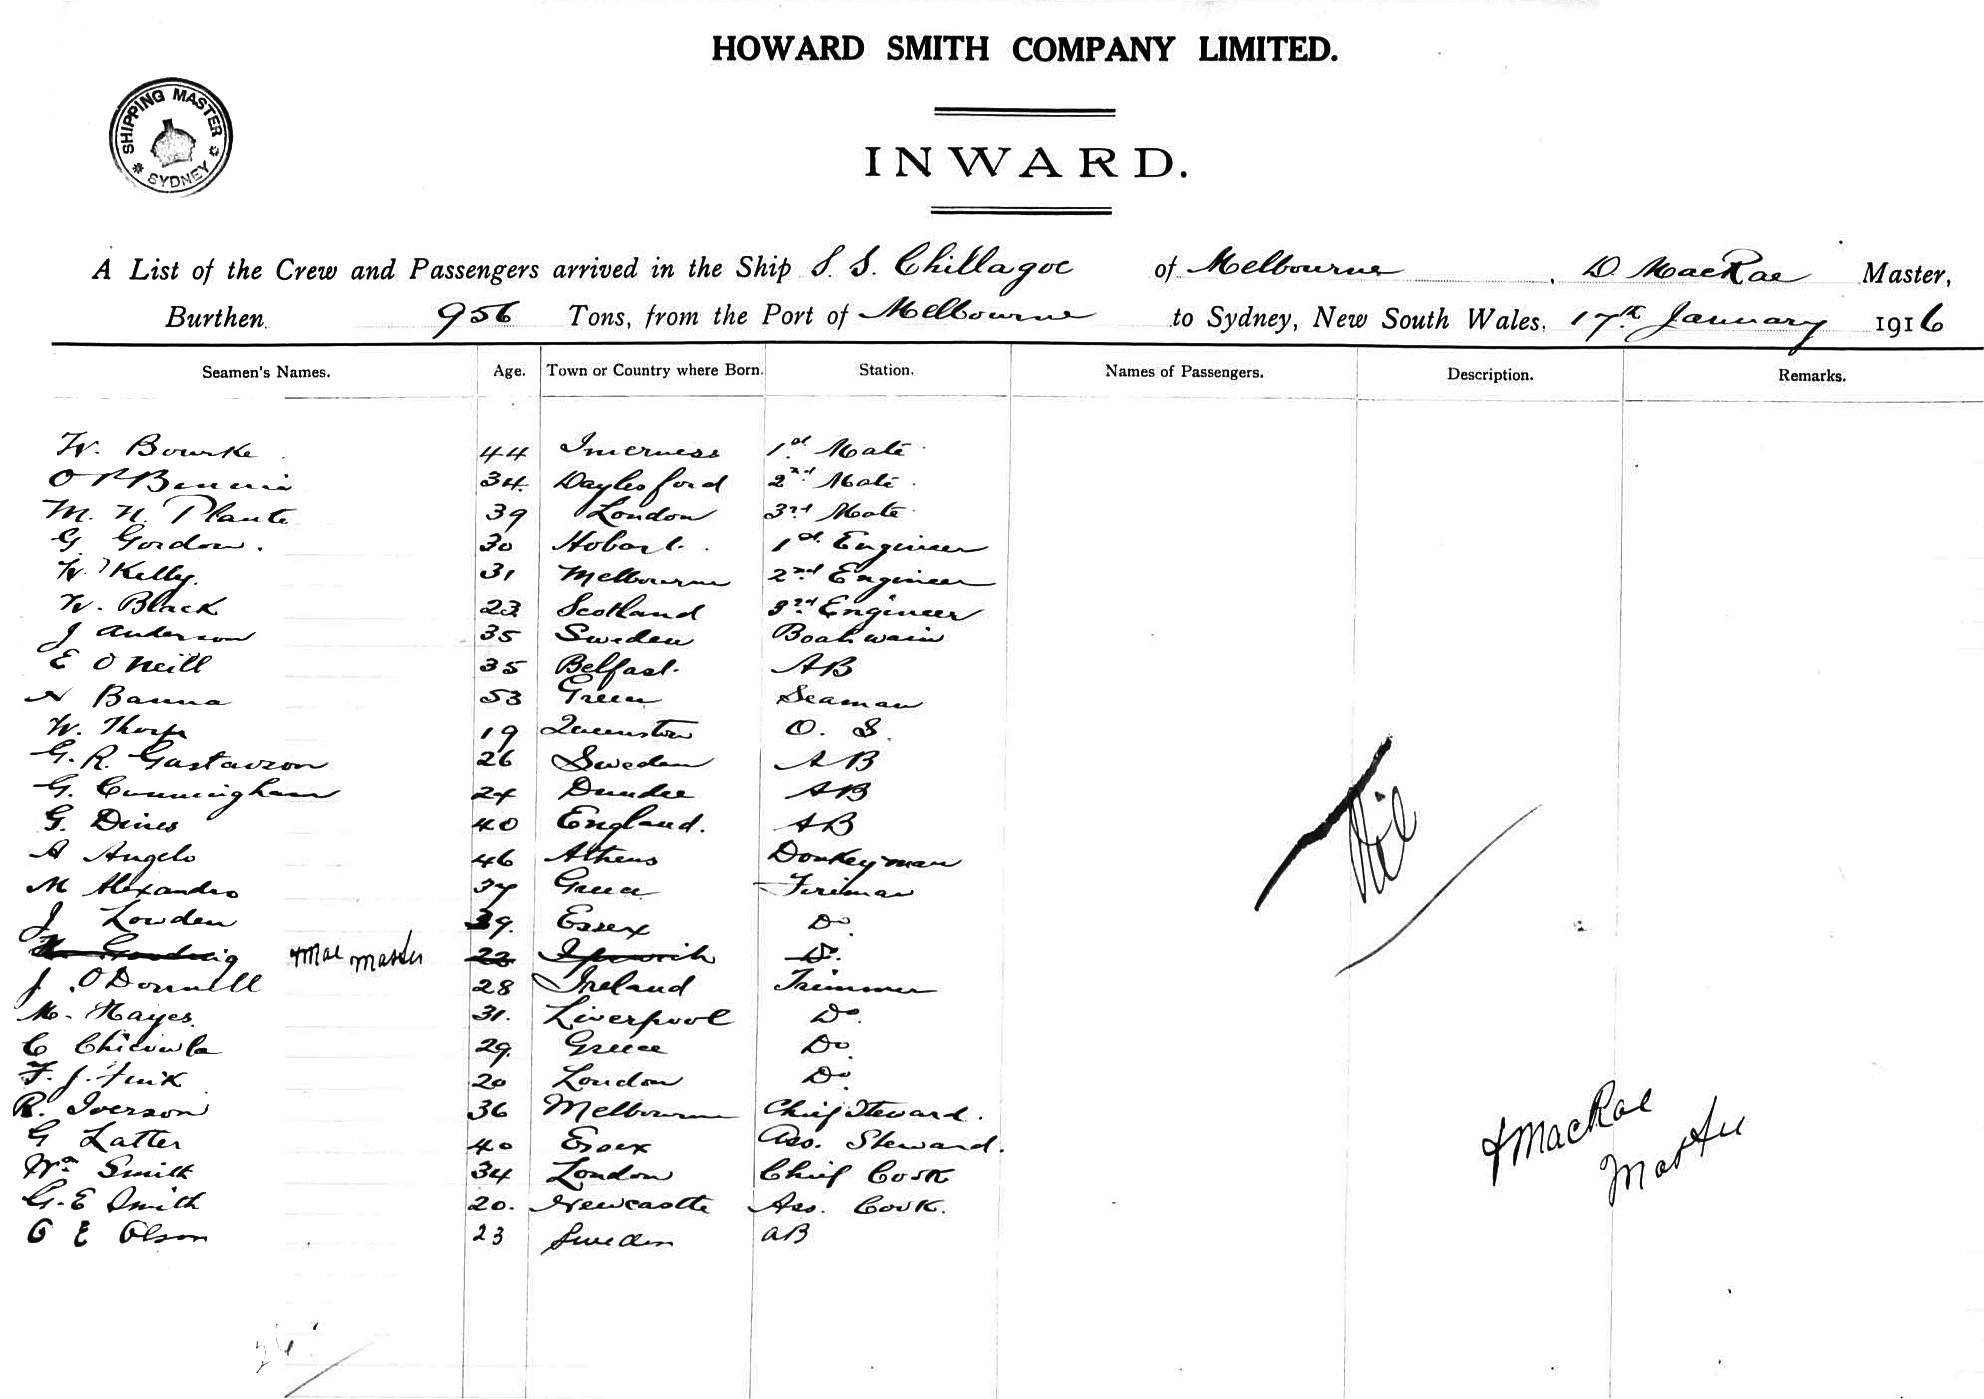 HOWARD SMITH COMPANY LIMITED.
SHIPPING MASTER
SYDNEY
INWARD.
A List of the Crew and Passengers arrived in the Ship S. S. Chillagoe of Melbourne, D. MacRae Master,
Burthen 956 Tons, from the Port of Melbourne to Sydney, New South Wales. 17th January 1916
Seamen's Names. Age. Town or Country where Born. Station. Names of Passengers. Description. Remarks.
W. Bourke 44 Inverness 1st Mate
34 Daylesford 2nd Mate
M. N. Plante 39 London 3rd Mate
G. Gordon. 30 Hobart. 1st Engineer
W. Kelly. 31 Melbourne 2nd Engineer
W. Black 23 Scotland 3rd Engineer
J Anderson 35 Sweden Boatswain
E O'Neill 35 Belfast. AB
N Banna 53 Greece Seaman
W. Thorp 19 Queenstown O. S.
G. R. Gustavson 26 Sweden AB
G. Cunningham 24 Dundee AB
G. Dines 40 England. AB
A Angelo 46 Athens Donkeyman
M Alexandro 37 Greece Fireman
J Lowden 39. Essex Do.
Master 22 Ipswich Do.
J. O'Donnell 28 Ireland Trimmer
M. Hayes 31. Liverpool Do.
C 29. Greece Do.
F. J. Fink 20 London Do.
R. Iverson 36 Melbourne Chief Steward.
G Latter 40 Essex Ass. Steward.
Wm Smith 34 London Chief Cook
G. E Smith 20. Newcastle Ass. Cook.
O E Olson 23 Sweden AB
Nil
DMacRae
Master
26